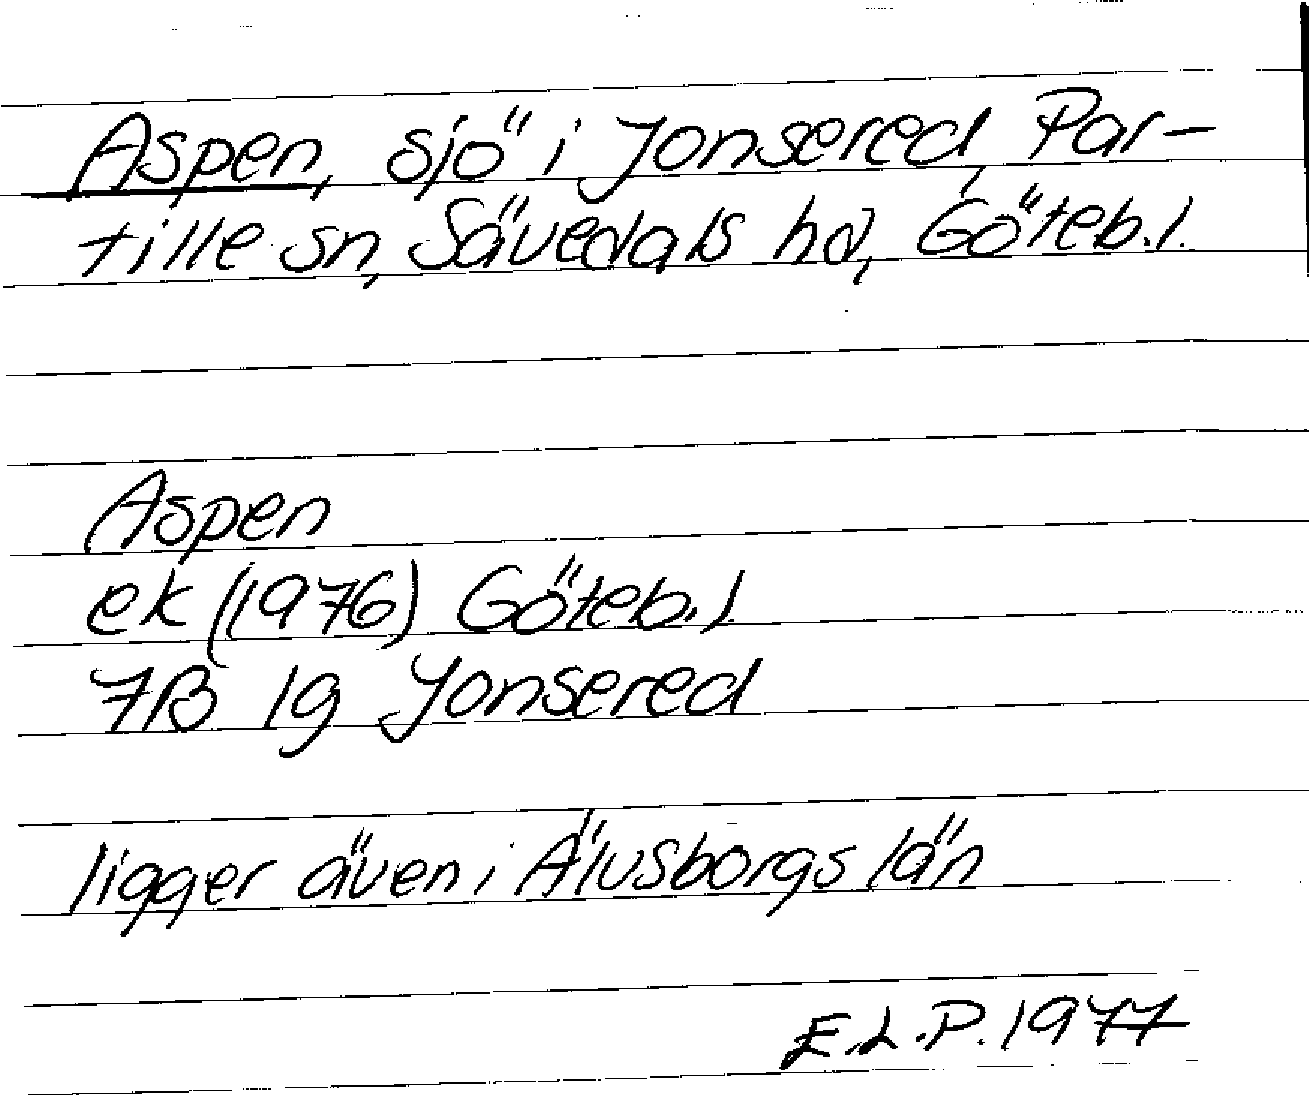 Aspen, sjö i Jonsered, Par-
tille sn, Sävedals hd, Göteb.l.
Aspen
ek (1976) Göteb.l.
7B 1g Jonsered
ligger även i Älvsborgs län
E.L.P. 1977